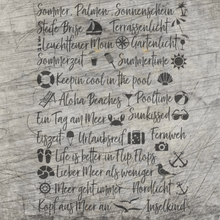 Sommer, Palmen, Sonnenschein
Steife Brise Terrassenlicht
Leuchtfeuer Moin Gartenlicht
Sommerzeit Summertime
Keepin cool in the pool
Aloha Beaches Pooltime
Ein Tag am Meer Sunkissed
Eiszeit Urlaubsreif Fernweh
Life is better in Flip Flops
Lieber Meer als weniger
Meer geht immer Nordlicht
Kopf aus Meer an Inselkind